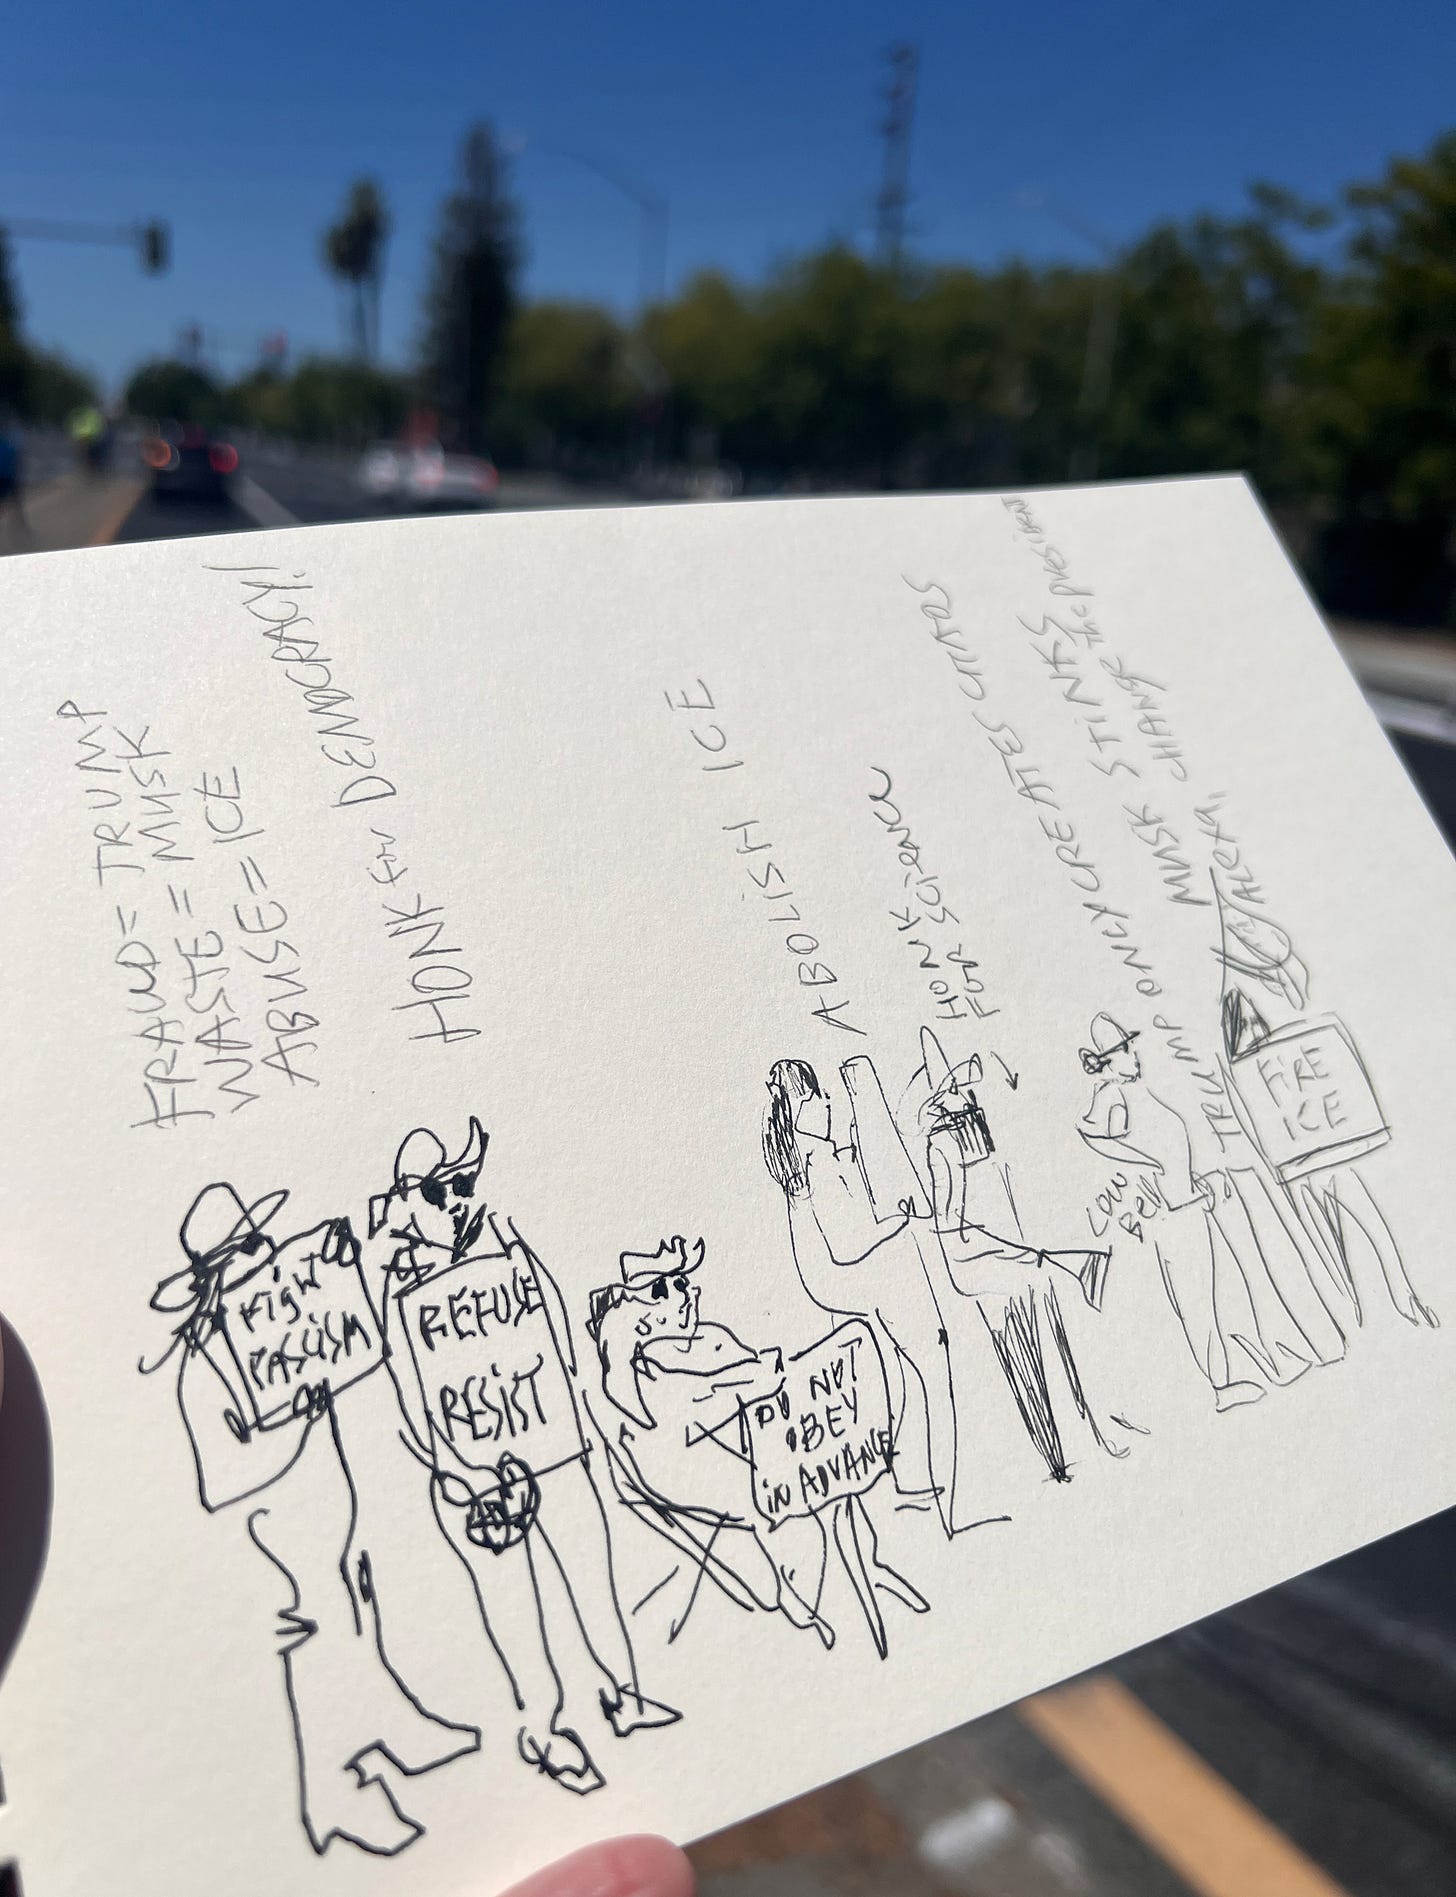 FRAUD = TRUMP
WASTE = MUSK
ABUSE = ICE
HONK for DEMOCRACY!
ABOLISH ICE
HONK
FOR SCIENCE
TRUMP ONLY CREATES CHAOS
MUSK STINKS
ALEXA, CHANGE THE PRESIDENT
FIGHT
FASCISM
REFUSE
RESIST
DO NOT
OBEY
IN ADVANCE
COW
BELL
FIRE
ICE